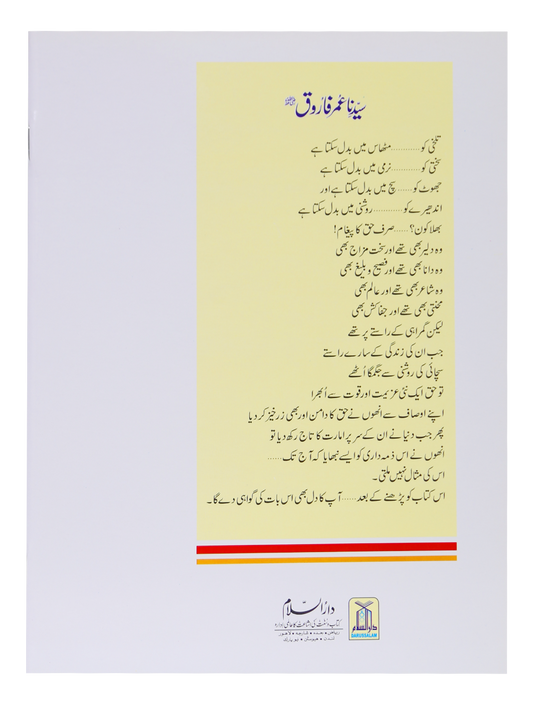 سیّدنا عُمر فاروق رضی اللہ عنہ
تلخی کو............مٹھاس میں بدل سکتا ہے
سختی کو............نرمی میں بدل سکتا ہے
جھوٹ کو......سچ میں بدل سکتا ہے اور
اندھیرے کو............روشنی میں بدل سکتا ہے
بھلا کون؟......صرف حق کا پیغام!
وہ دلیر بھی تھے اور سخت مزاج بھی
وہ دانا بھی تھے اور فصیح و بلیغ بھی
وہ شاعر بھی تھے اور عالم بھی
محنتی بھی تھے اور جفاکش بھی
لیکن گمراہی کے راستے پر تھے
جب ان کی زندگی کے سارے راستے
سچائی کی روشنی سے جگمگا اُٹھے
تو حق ایک نئی عزیمت اور قوت سے اُبھرا
اپنے اوصاف سے انھوں نے حق کا دامن اور بھی زرخیز کر دیا
پھر جب دنیا نے ان کے سر پر امارت کا تاج رکھ دیا تو
انھوں نے اس ذمہ داری کو ایسے نبھایا کہ آج تک......
اس کی مثال نہیں ملتی۔
اس کتاب کو پڑھنے کے بعد......آپ کا دل بھی اس بات کی گواہی دے گا۔
دارُالسّلام
کتاب و سنت کی اشاعت کا عالمی ادارہ
ریاض • جدہ • شارجہ • لاہور
لندن • ہیوسٹن • نیویارک
دارالسلام
DARUSSALAM